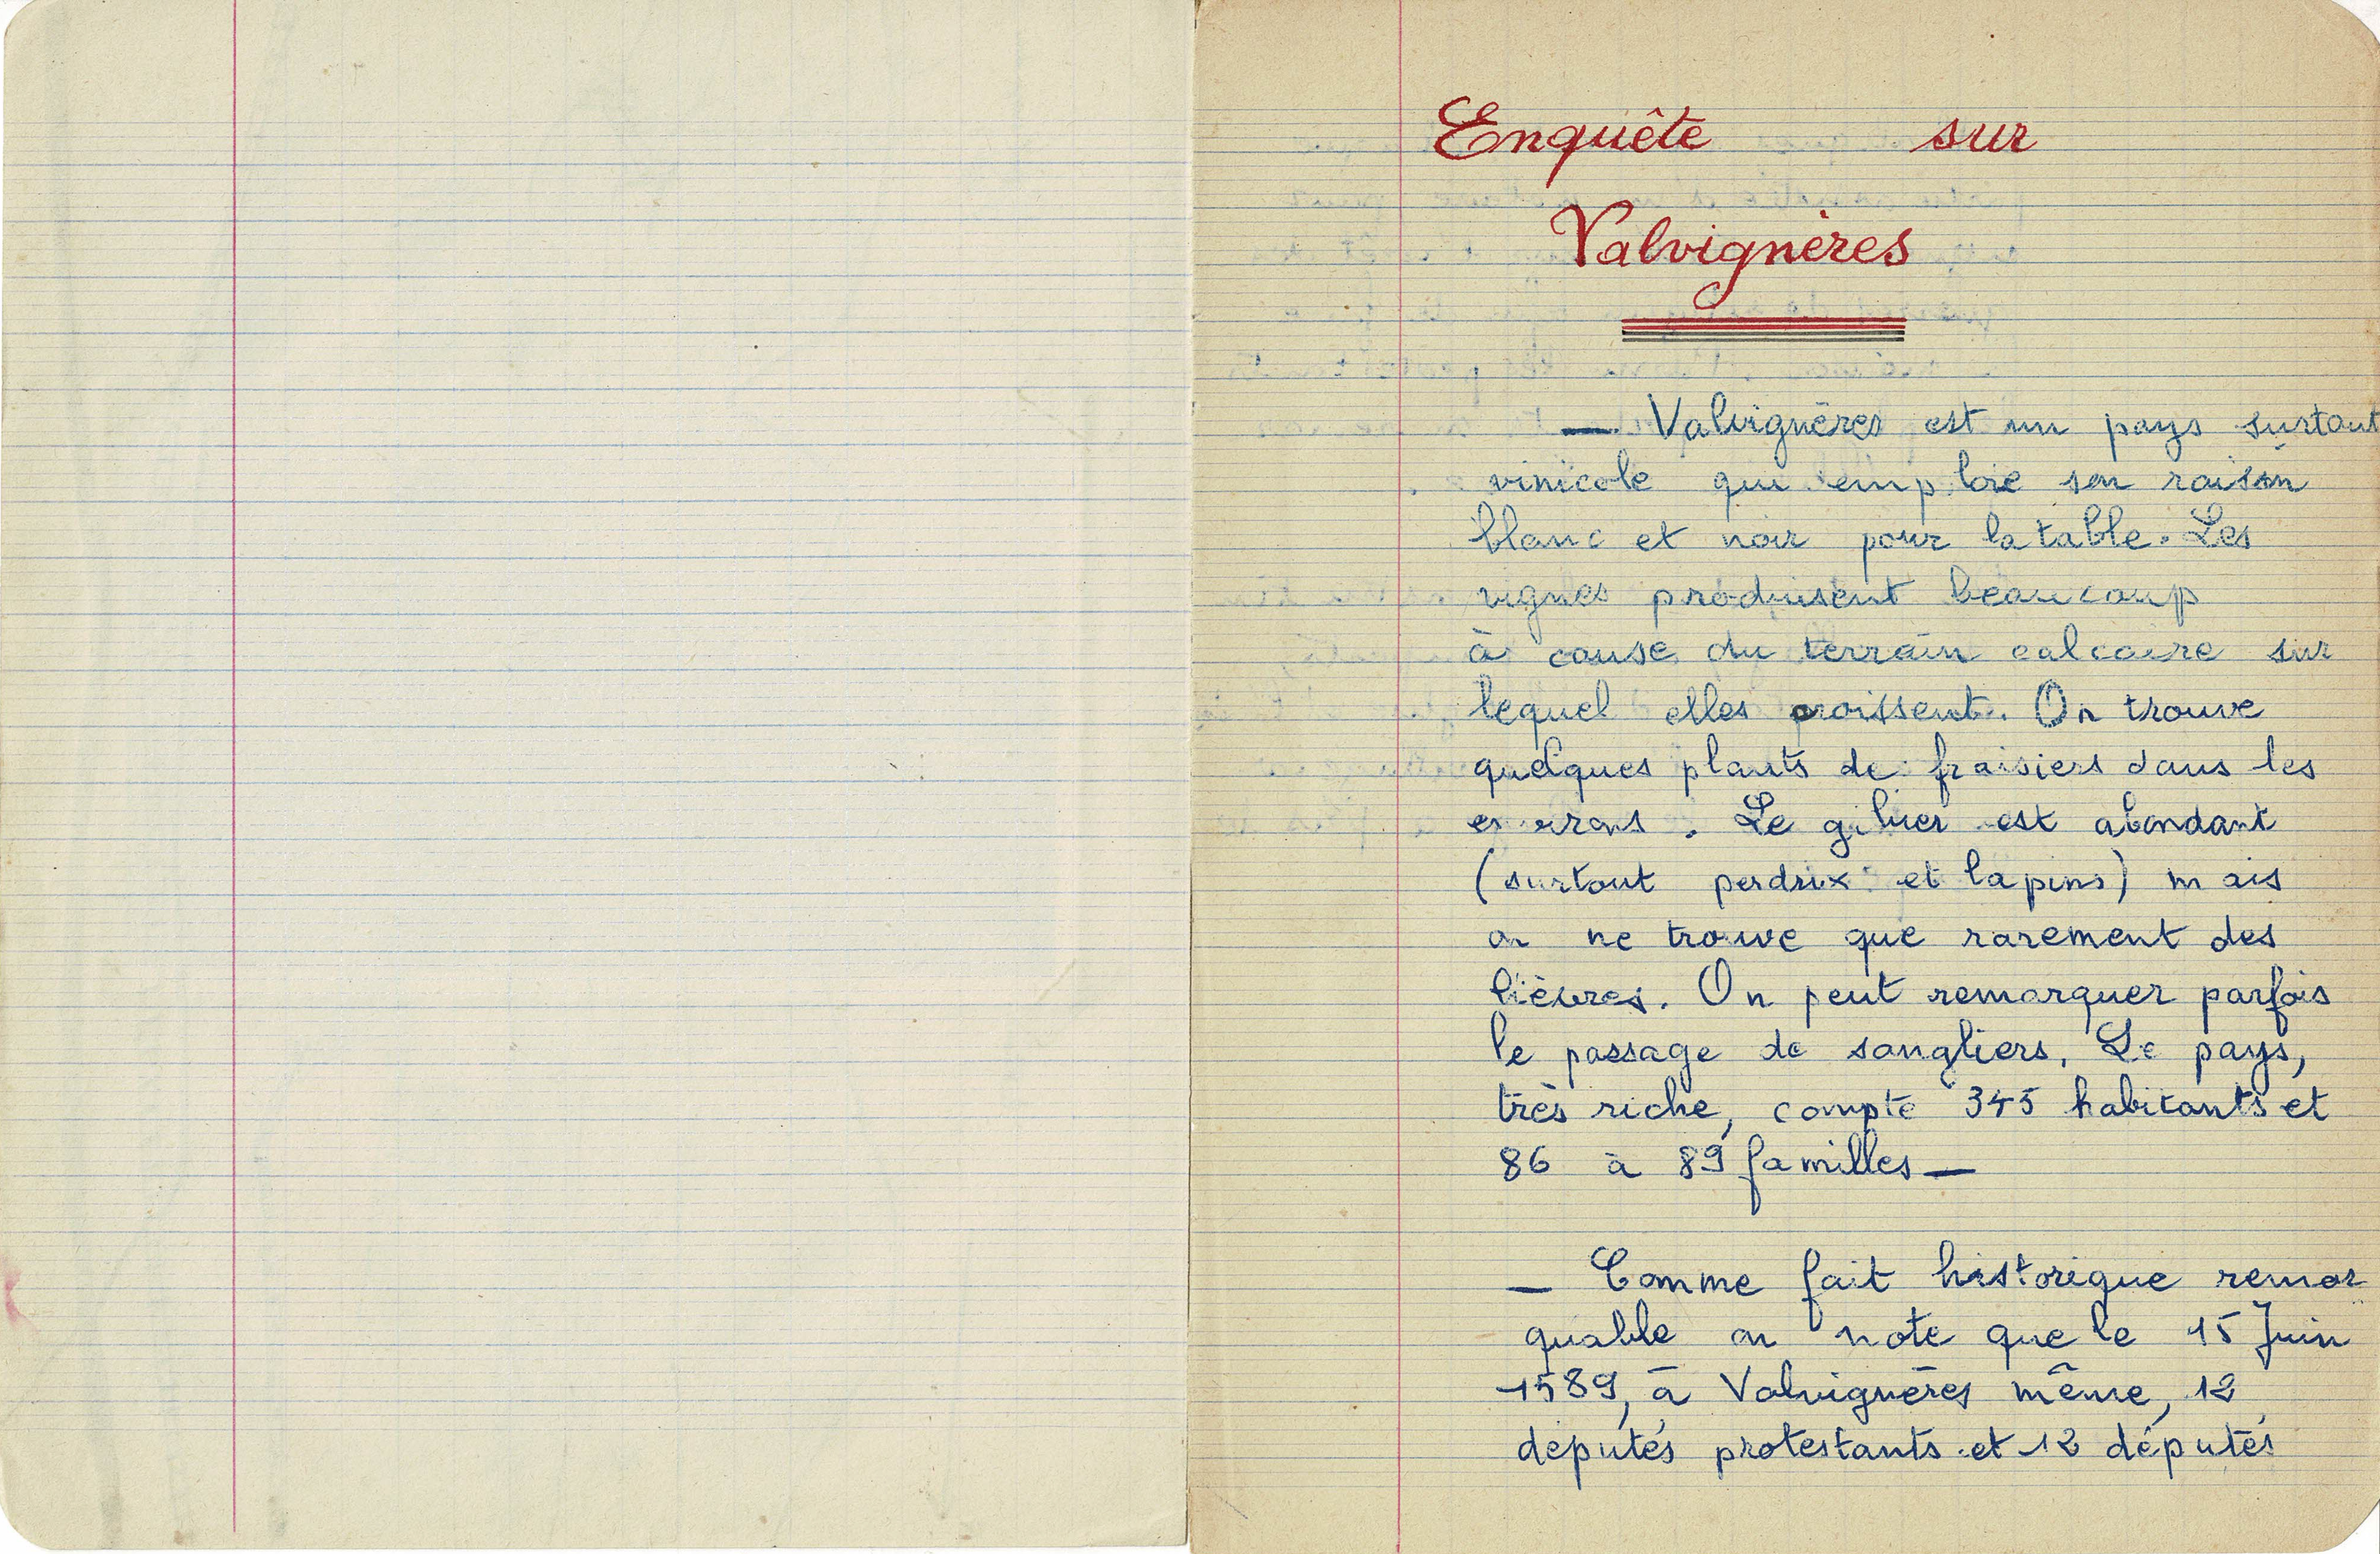 Enquête sur
Valvignères
— Valvignères est un pays surtout
vinicole qui emploie son raisin
blanc et noir pour la table. Les
vignes produisent beaucoup
à cause du terrain calcaire sur
lequel elles croissent. On trouve
quelques plants de fraisiers dans les
environs. Le gibier est abondant
(surtout perdrix et lapins) mais
on ne trouve que rarement des
lièvres. On peut remarquer parfois
le passage de sangliers. Le pays,
très riche, compte 345 habitants et
86 à 89 familles —
— Comme fait historique remar
quable on note que le 15 Juin
1589, à Valvignères même, 12
députés protestants et 12 députés